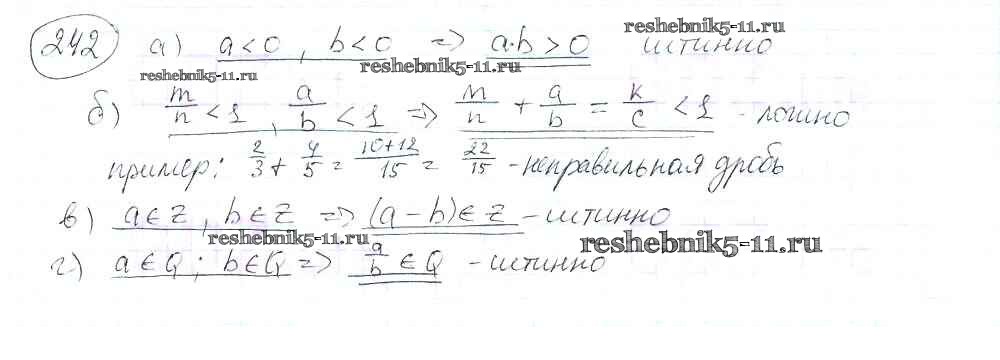 reshebnik5-11.ru
242 а) a<0, b<0 => a·b>0 истинно
reshebnik5-11.ru reshebnik5-11.ru
б) m/n < 1, a/b < 1 => m/n + a/b = k/c < 1 - ложно
пример: 2/3 + 4/5 = 10+12/15 = 22/15 - неправильная дробь
в) a∈Z, b∈Z => (a-b)∈Z - истинно
reshebnik5-11.ru reshebnik5-11.ru
г) a∈Q; b∈Q => a/b ∈ Q - истинно